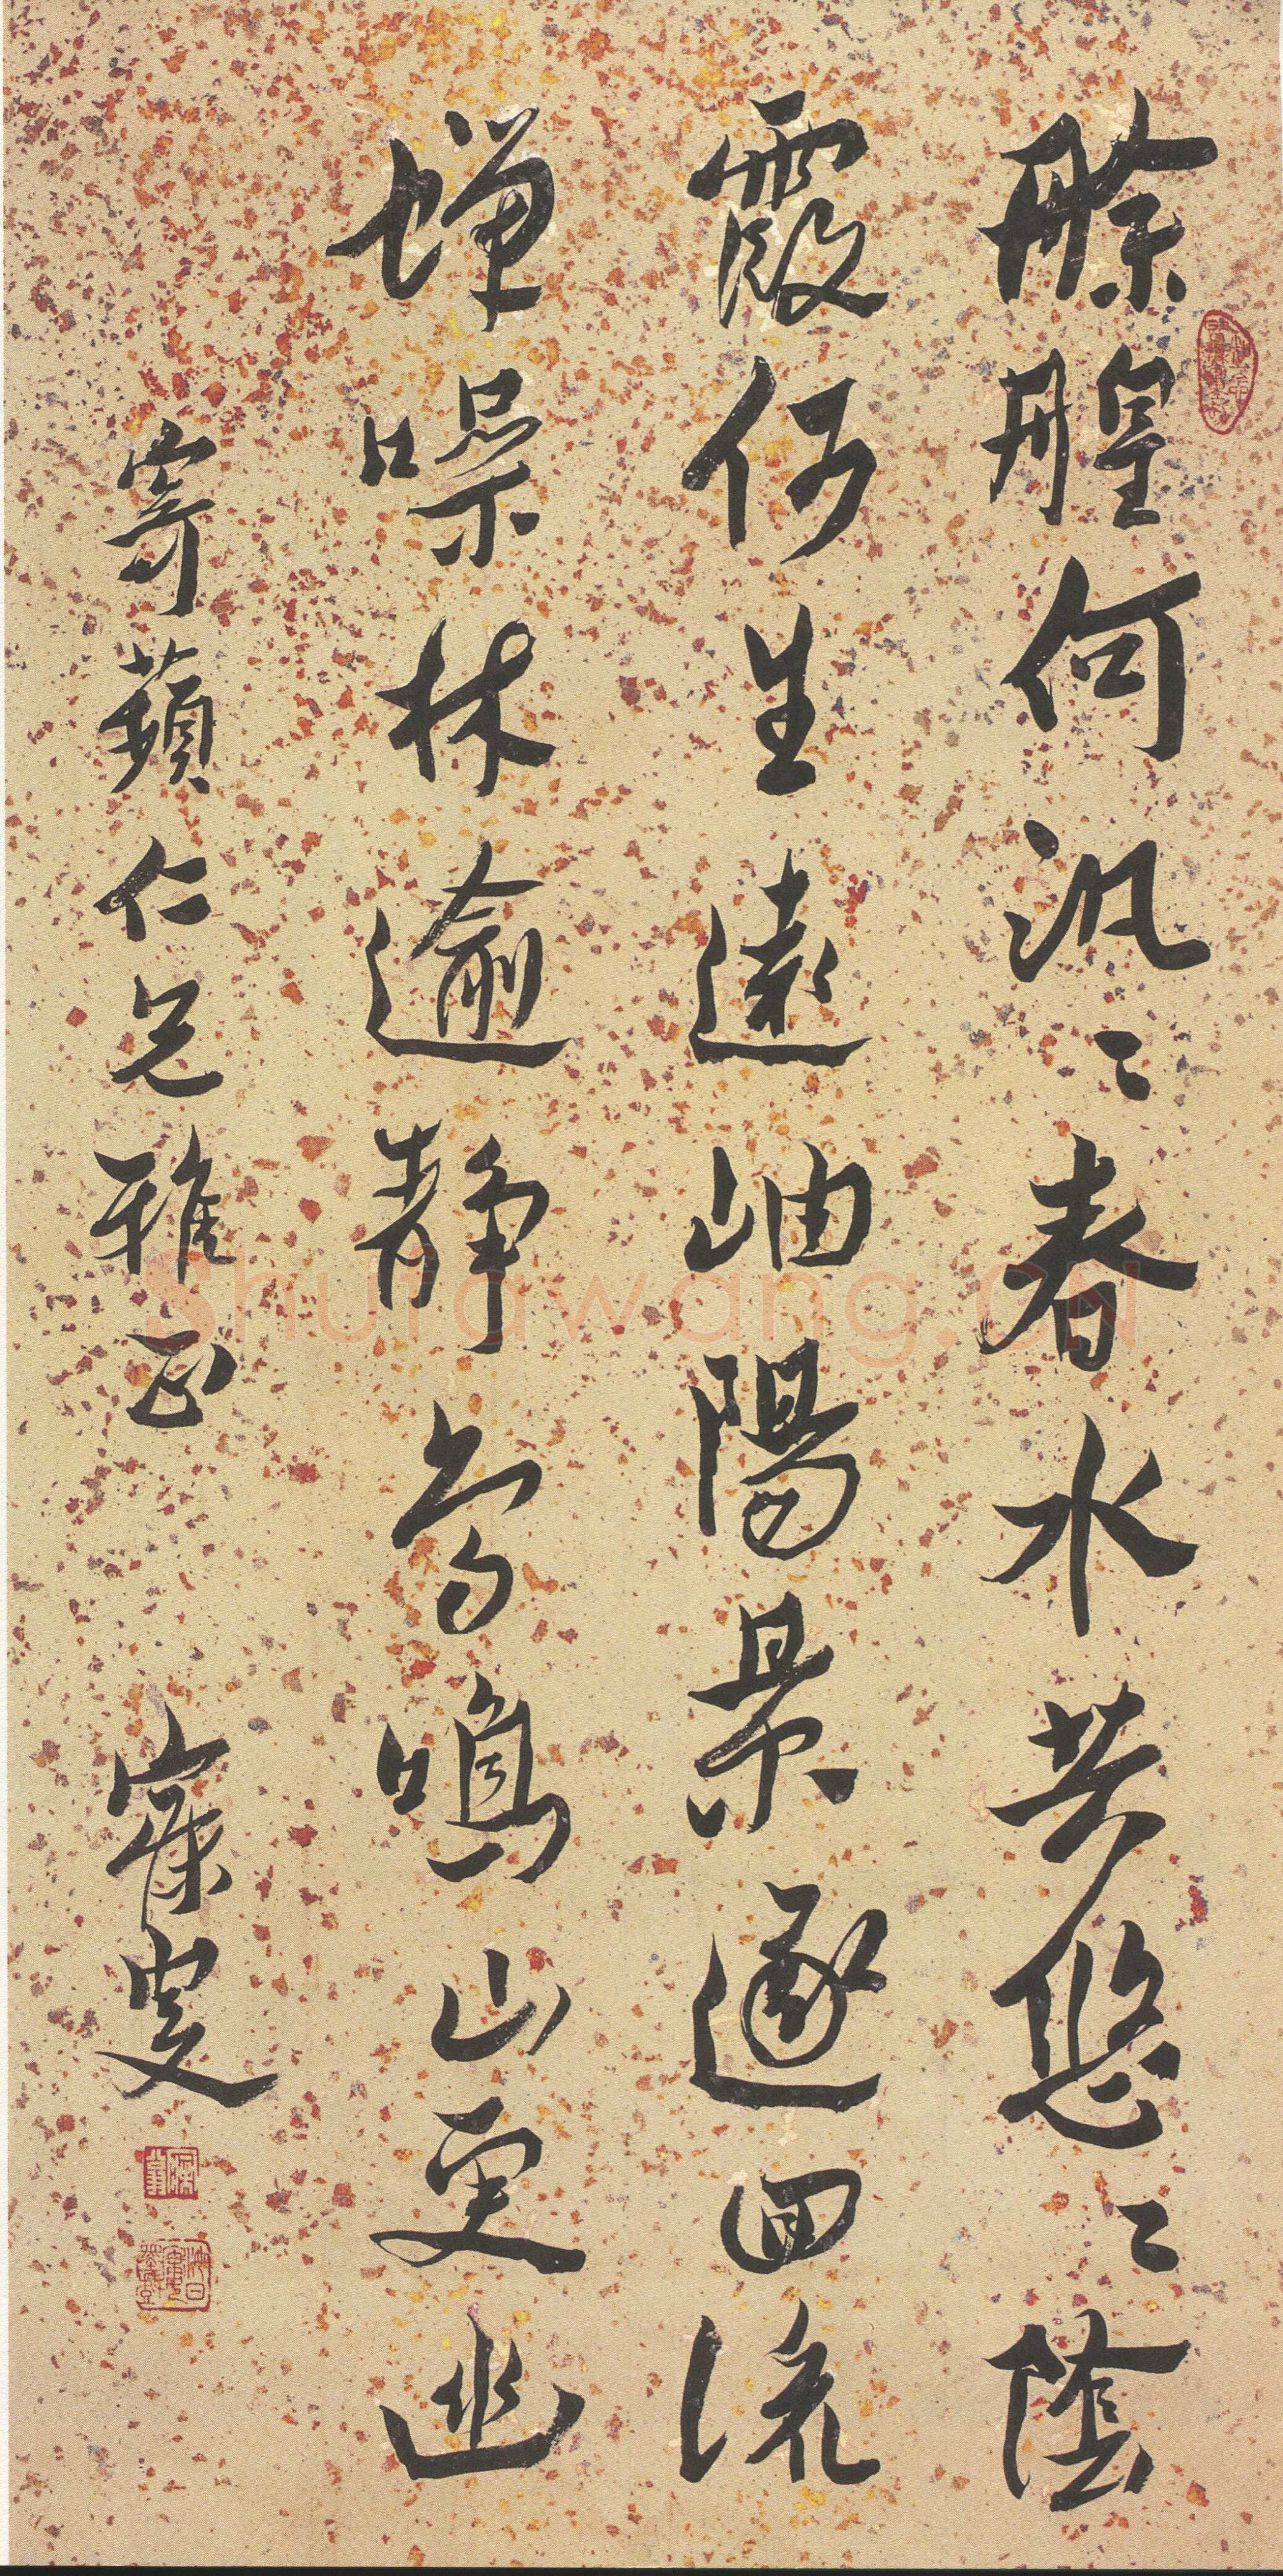 艅艎何汎〻春水共悠〻陰
霞何生遠岫陽景逐回流
蟬噪林逾靜鳥鳴山更幽
寄蘋仁兄雅正 寐叟
Shufawang.CN